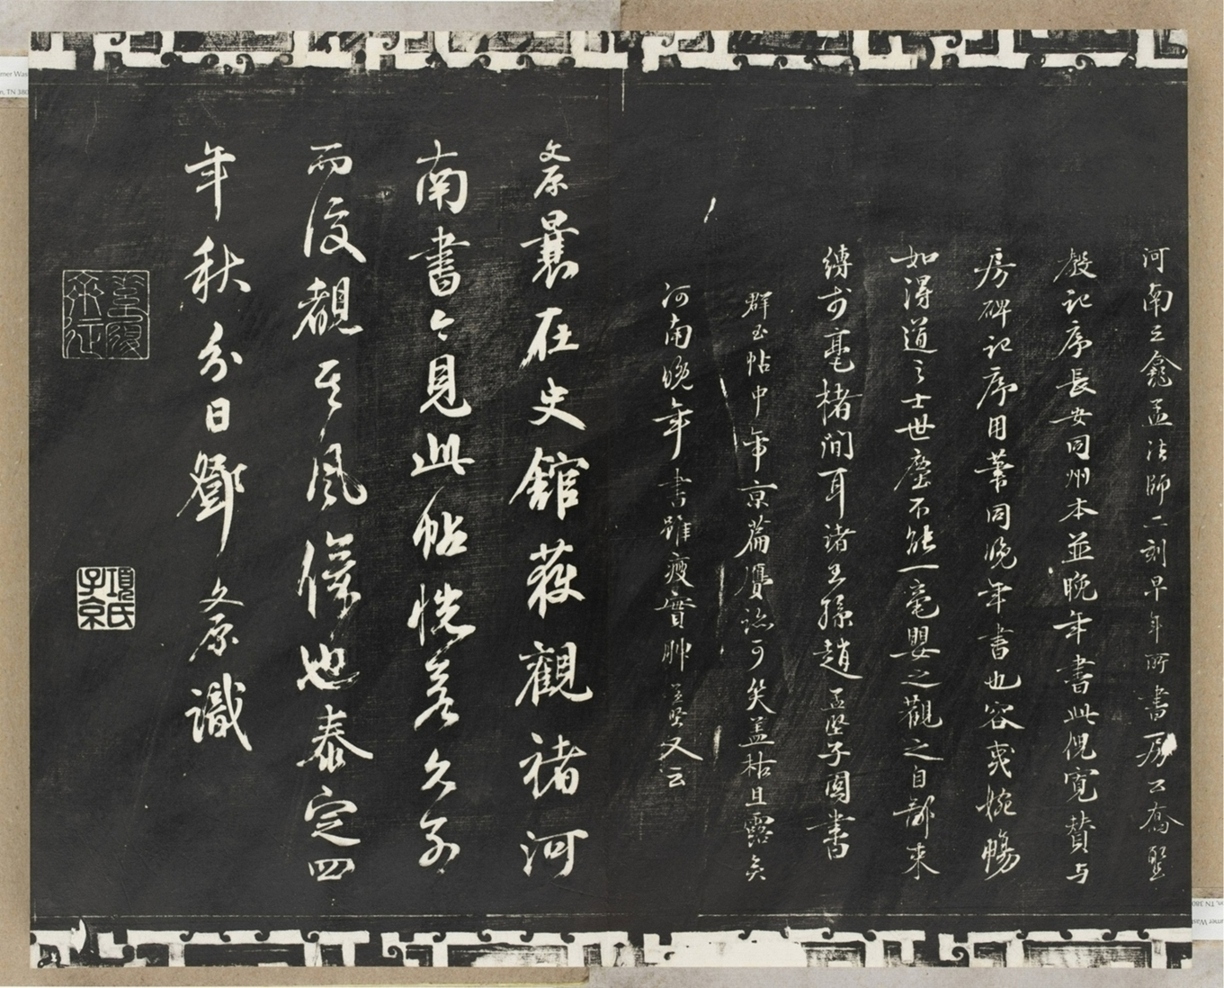 河南三龕孟法師二刻早年所書房公喬聖
教記序長安同州本並晚年書此倪寬贊与
房碑記序用筆同晚年書也容夷婉暢
如得道之士世塵不能一毫嬰之觀之自鄙束
縛於毫楮間耳諸王孫趙孟堅子固書
群玉帖中帝京篇贗跡可笑蓋枯且露矣
河南晚年書雖瘦實腴孟堅又云
文原曩在史館獲觀褚河
南書今見此帖恍若久別
而復覩其風儀也泰定四
年秋分日鄧文原識
項氏子京